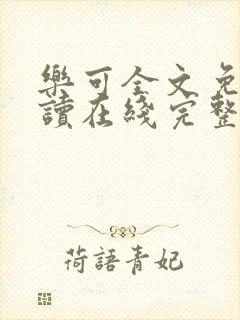 樂可全文免
讀在綫完整
荷語青妃